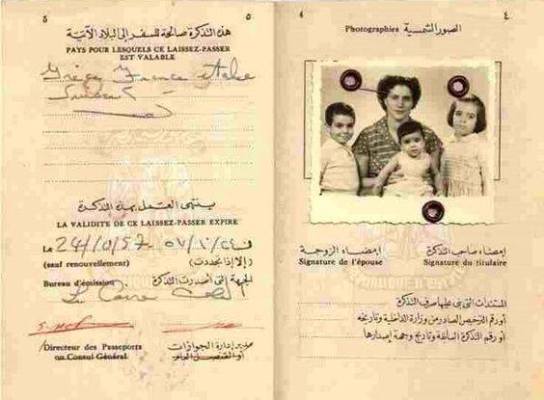 ٥
هذه التذكرة صالحة للسفر إلى البلاد الآتية
PAYS POUR LESQUELS CE LAISSEZ-PASSER
EST VALABLE
Grèce, France, Italie
ينتهى العمل بهذه التذكرة
LA VALIDITE DE CE LAISSEZ-PASSER EXPIRE
Le 24/1/57 ٥٧/١/٢٤ فى
(sauf renouvellement) (إلا إذا تجددت)
Bureau d'émission الجهة التى أصدرت التذكرة
Le Caire
Directeur des Passeports مدير إدارة الجوازات
ou Consul Général أو القنصل العام
4 ٤
Photographies الصور الشمسية
إمضاء الزوجة إمضاء صاحب التذكرة
Signature de l'épouse Signature du titulaire
المستندات التى بنى عليها صرف التذكرة
أو رقم الترخيص الصادر من وزارة الداخلية وتاريخه
أو رقم التذكرة السابقة وتاريخ وجهة إصدارها